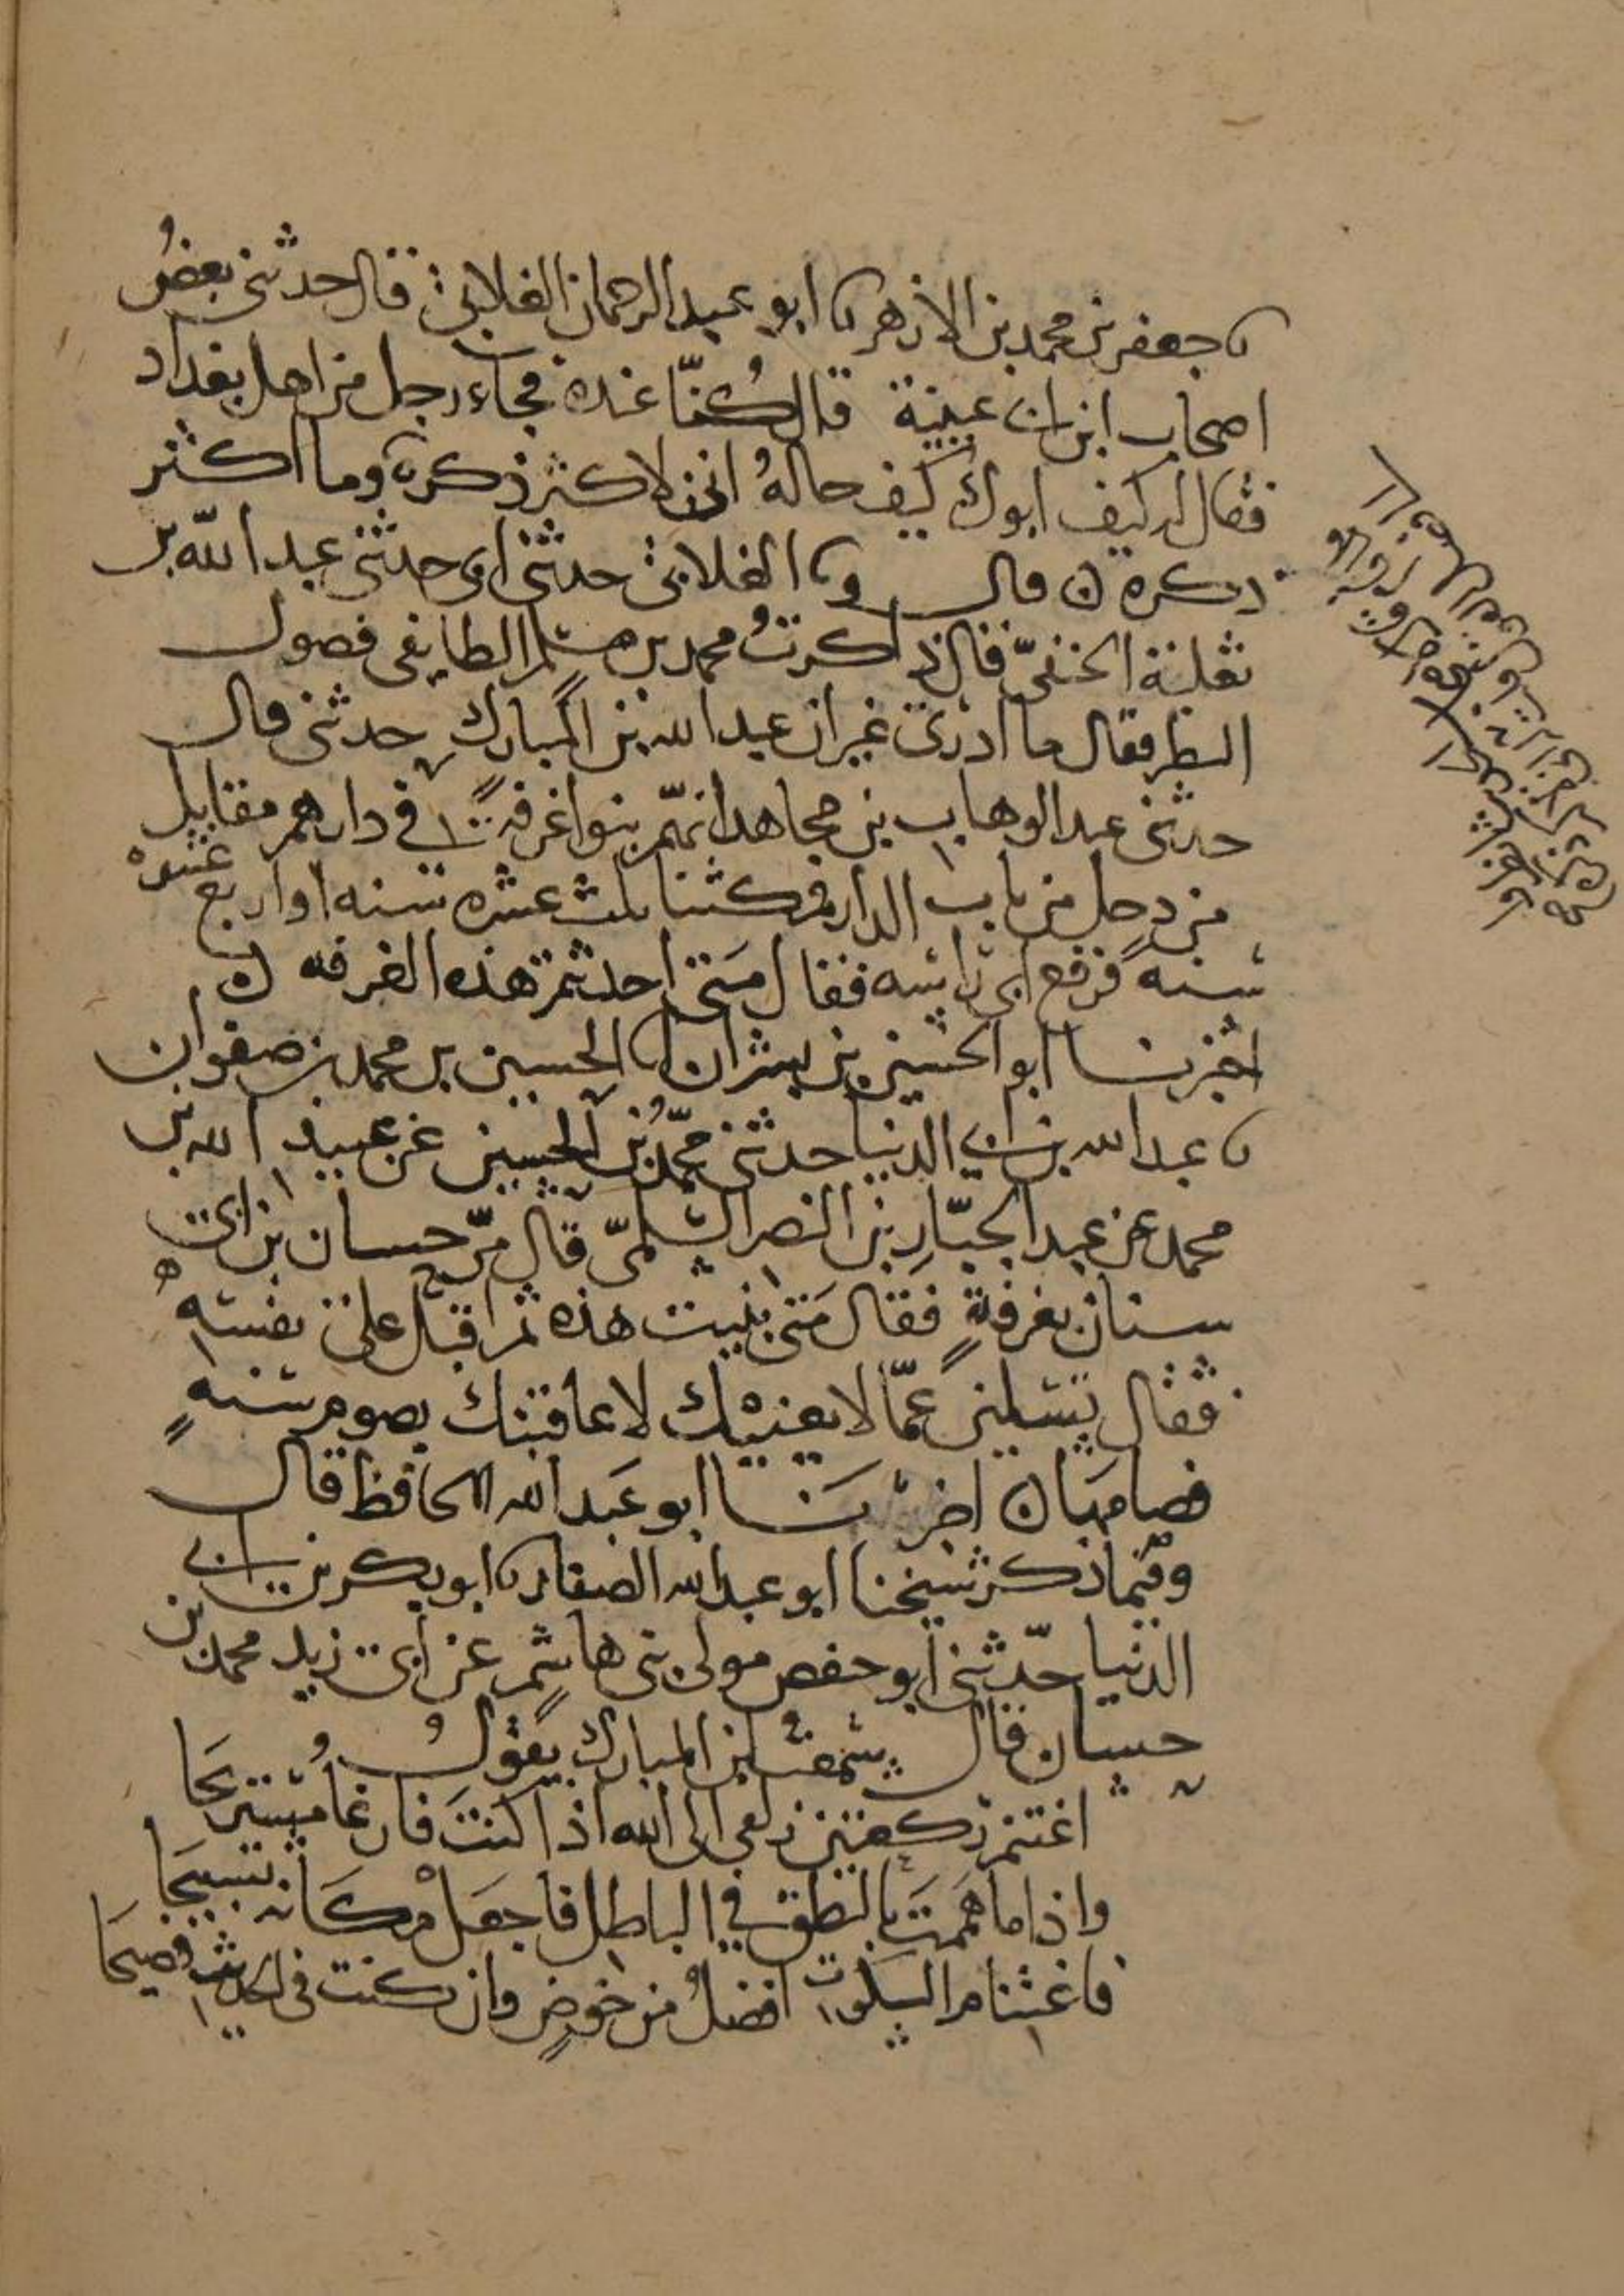 نا جعفر بن محمد بن الازهر نا ابو عبد الرحمان الغلابي قال حدثني بعض
اصحاب ابن ابي عيينة قال كُنّا عنده فجاء رجل من اهل بغداد
فقال له كيف ابوك كيف حالهُ اني لاكثر ذكره وما اكثر
ذكره ن قال ونا الغلابي حدثني ابي حدثني عبد الله بن
ثعلبة الحنفيّ قال ذاكرتُ محمد بن مسلم الطايفي فضول
النظر فقال ما ادري غير ان عبد الله بن المبارك حدثني قال
حدثني عبد الوهاب بن مجاهد انهّم بنوا غرفةً في دارهم مقابل
من دخل من باب الدار فمكثنا ثلث عشره سنه او اربع عشرهْ
سنه فرفع ابي راسه فقال مَتى احدثتم هذه الغرفه ن
اخبرنا ابو الحسين بن بشران انا الحسين بن محمد بن صفوان
نا عبد الله بن ابي الدنيا حدثني محمّدُ بن الحسين عن عبيد الله بن
محمد عن عبد الجبّارِ بن النضر السلميّ قال مرّ حسان بن ابي
سنان بغرفةٍ فقال مَتى بنيت هذه ثم اقبل على نفسهِ
فقال تسلين عمّا لا يعنيْك لاعاقبنك بصوم سنهٍ
فصامهَا ن اخبرنَا ابو عَبد الله الحافظ قال
وفيما ذكر شيخنا ابو عبد الله الصفار نا ابو بكر بن ابي
الدنيا حدّثني ابو حفص مولى بني هاشمٍ عن ابي زيد محمد بن
حسان قال سمعت ابن المبارك يقولُ
اغتنم ركعتين زلفى الى الله اذا كنتَ فارغاً مُستريحَا
واذا ما هَممتَ بالنطق في الباطل فاجعَلْ مكَانه تسبيحَا
فاغتنام السكوت افضلُ من خوضٍ وان كنت في الحديث فصيحَا